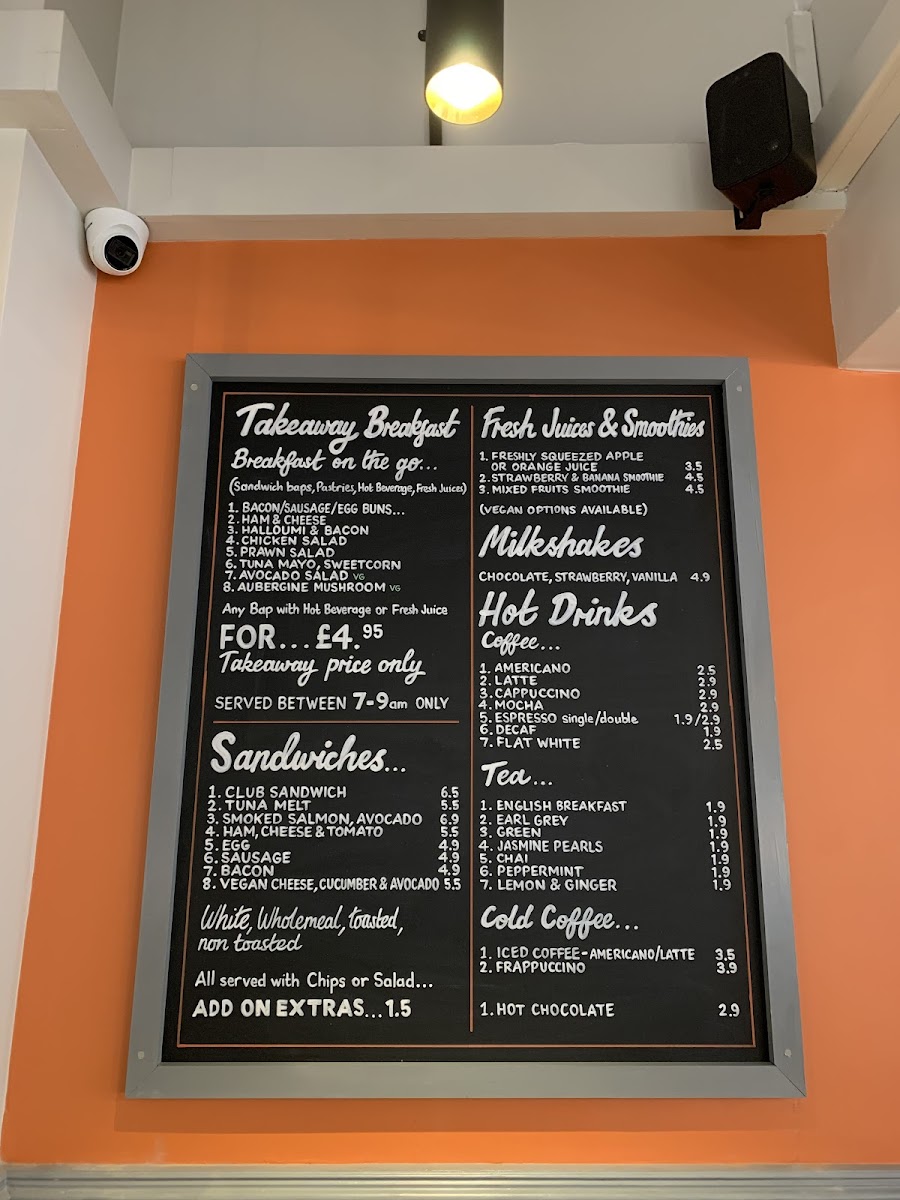 Takeaway Breakfast
Breakfast on the go...
(Sandwich baps, Pastries, Hot Beverage, Fresh Juices)
1. BACON/SAUSAGE/EGG BUNS...
2. HAM & CHEESE
3. HALLOUMI & BACON
4. CHICKEN SALAD
5. PRAWN SALAD
6. TUNA MAYO, SWEETCORN
7. AVOCADO SALAD VG
8. AUBERGINE MUSHROOM VG
Any Bap with Hot Beverage or Fresh Juice
FOR... £4.95
Takeaway price only
SERVED BETWEEN 7-9am ONLY
Sandwiches...
1. CLUB SANDWICH 6.5
2. TUNA MELT 5.5
3. SMOKED SALMON, AVOCADO 6.9
4. HAM, CHEESE & TOMATO 5.5
5. EGG 4.9
6. SAUSAGE 4.9
7. BACON 4.9
8. VEGAN CHEESE, CUCUMBER & AVOCADO 5.5
White, Wholemeal, toasted,
non toasted
All served with Chips or Salad...
ADD ON EXTRAS... 1.5
Fresh Juices & Smoothies
1. FRESHLY SQUEEZED APPLE
OR ORANGE JUICE 3.5
2. STRAWBERRY & BANANA SMOOTHIE 4.5
3. MIXED FRUITS SMOOTHIE 4.5
(VEGAN OPTIONS AVAILABLE)
Milkshakes
CHOCOLATE, STRAWBERRY, VANILLA 4.9
Hot Drinks
Coffee...
1. AMERICANO 2.5
2. LATTE 2.9
3. CAPPUCCINO 2.9
4. MOCHA 2.9
5. ESPRESSO single/double 1.9/2.9
6. DECAF 1.9
7. FLAT WHITE 2.5
Tea...
1. ENGLISH BREAKFAST 1.9
2. EARL GREY 1.9
3. GREEN 1.9
4. JASMINE PEARLS 1.9
5. CHAI 1.9
6. PEPPERMINT 1.9
7. LEMON & GINGER 1.9
Cold Coffee...
1. ICED COFFEE - AMERICANO/LATTE 3.5
2. FRAPPUCCINO 3.9
1. HOT CHOCOLATE 2.9